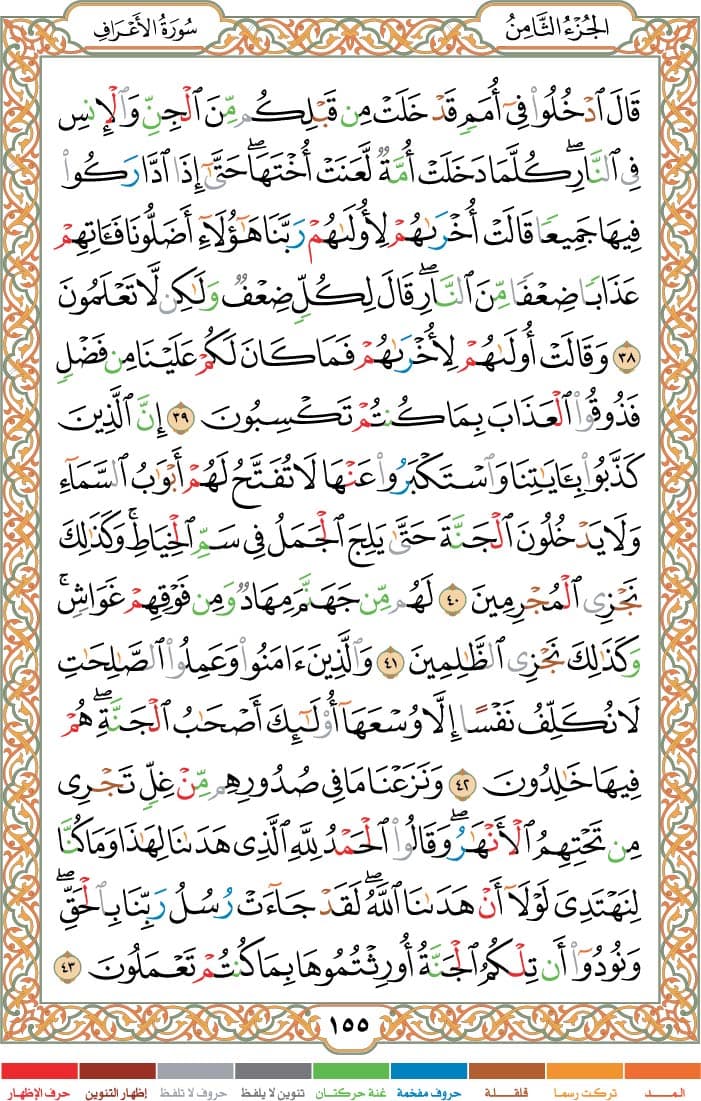 الجُزْءُ الثَّامِنُ
سُورَةُ الأَعْرَافِ
قَالَ ٱدْخُلُوا۟ فِىٓ أُمَمٍ قَدْ خَلَتْ مِن قَبْلِكُم مِّنَ ٱلْجِنِّ وَٱلْإِنسِ
فِى ٱلنَّارِ ۖ كُلَّمَا دَخَلَتْ أُمَّةٌ لَّعَنَتْ أُخْتَهَا ۖ حَتَّىٰٓ إِذَا ٱدَّارَكُوا۟
فِيهَا جَمِيعًا قَالَتْ أُخْرَىٰهُمْ لِأُولَىٰهُمْ رَبَّنَا هَٰٓؤُلَآءِ أَضَلُّونَا فَـَٔاتِهِمْ
عَذَابًا ضِعْفًا مِّنَ ٱلنَّارِ ۖ قَالَ لِكُلٍّ ضِعْفٌ وَلَٰكِن لَّا تَعْلَمُونَ
٣٨ وَقَالَتْ أُولَىٰهُمْ لِأُخْرَىٰهُمْ فَمَا كَانَ لَكُمْ عَلَيْنَا مِن فَضْلٍ
فَذُوقُوا۟ ٱلْعَذَابَ بِمَا كُنتُمْ تَكْسِبُونَ ٣٩ إِنَّ ٱلَّذِينَ
كَذَّبُوا۟ بِـَٔايَٰتِنَا وَٱسْتَكْبَرُوا۟ عَنْهَا لَا تُفَتَّحُ لَهُمْ أَبْوَٰبُ ٱلسَّمَآءِ
وَلَا يَدْخُلُونَ ٱلْجَنَّةَ حَتَّىٰ يَلِجَ ٱلْجَمَلُ فِى سَمِّ ٱلْخِيَاطِ ۚ وَكَذَٰلِكَ
نَجْزِى ٱلْمُجْرِمِينَ ٤٠ لَهُم مِّن جَهَنَّمَ مِهَادٌ وَمِن فَوْقِهِمْ غَوَاشٍ ۚ
وَكَذَٰلِكَ نَجْزِى ٱلظَّٰلِمِينَ ٤١ وَٱلَّذِينَ ءَامَنُوا۟ وَعَمِلُوا۟ ٱلصَّٰلِحَٰتِ
لَا نُكَلِّفُ نَفْسًا إِلَّا وُسْعَهَآ أُو۟لَٰٓئِكَ أَصْحَٰبُ ٱلْجَنَّةِ ۖ هُمْ
فِيهَا خَٰلِدُونَ ٤٢ وَنَزَعْنَا مَا فِى صُدُورِهِم مِّنْ غِلٍّ تَجْرِى
مِن تَحْتِهِمُ ٱلْأَنْهَٰرُ ۖ وَقَالُوا۟ ٱلْحَمْدُ لِلَّهِ ٱلَّذِى هَدَىٰنَا لِهَٰذَا وَمَا كُنَّا
لِنَهْتَدِىَ لَوْلَآ أَنْ هَدَىٰنَا ٱللَّهُ ۖ لَقَدْ جَآءَتْ رُسُلُ رَبِّنَا بِٱلْحَقِّ ۖ
وَنُودُوٓا۟ أَن تِلْكُمُ ٱلْجَنَّةُ أُورِثْتُمُوهَا بِمَا كُنتُمْ تَعْمَلُونَ ٤٣
١٥٥
المـــد تركت رسما قلقـلة حروف مفخمة غنة حركتـان تنوين لا يلفظ حروف لا تلفظ إظهار التنوين حرف الإظهار